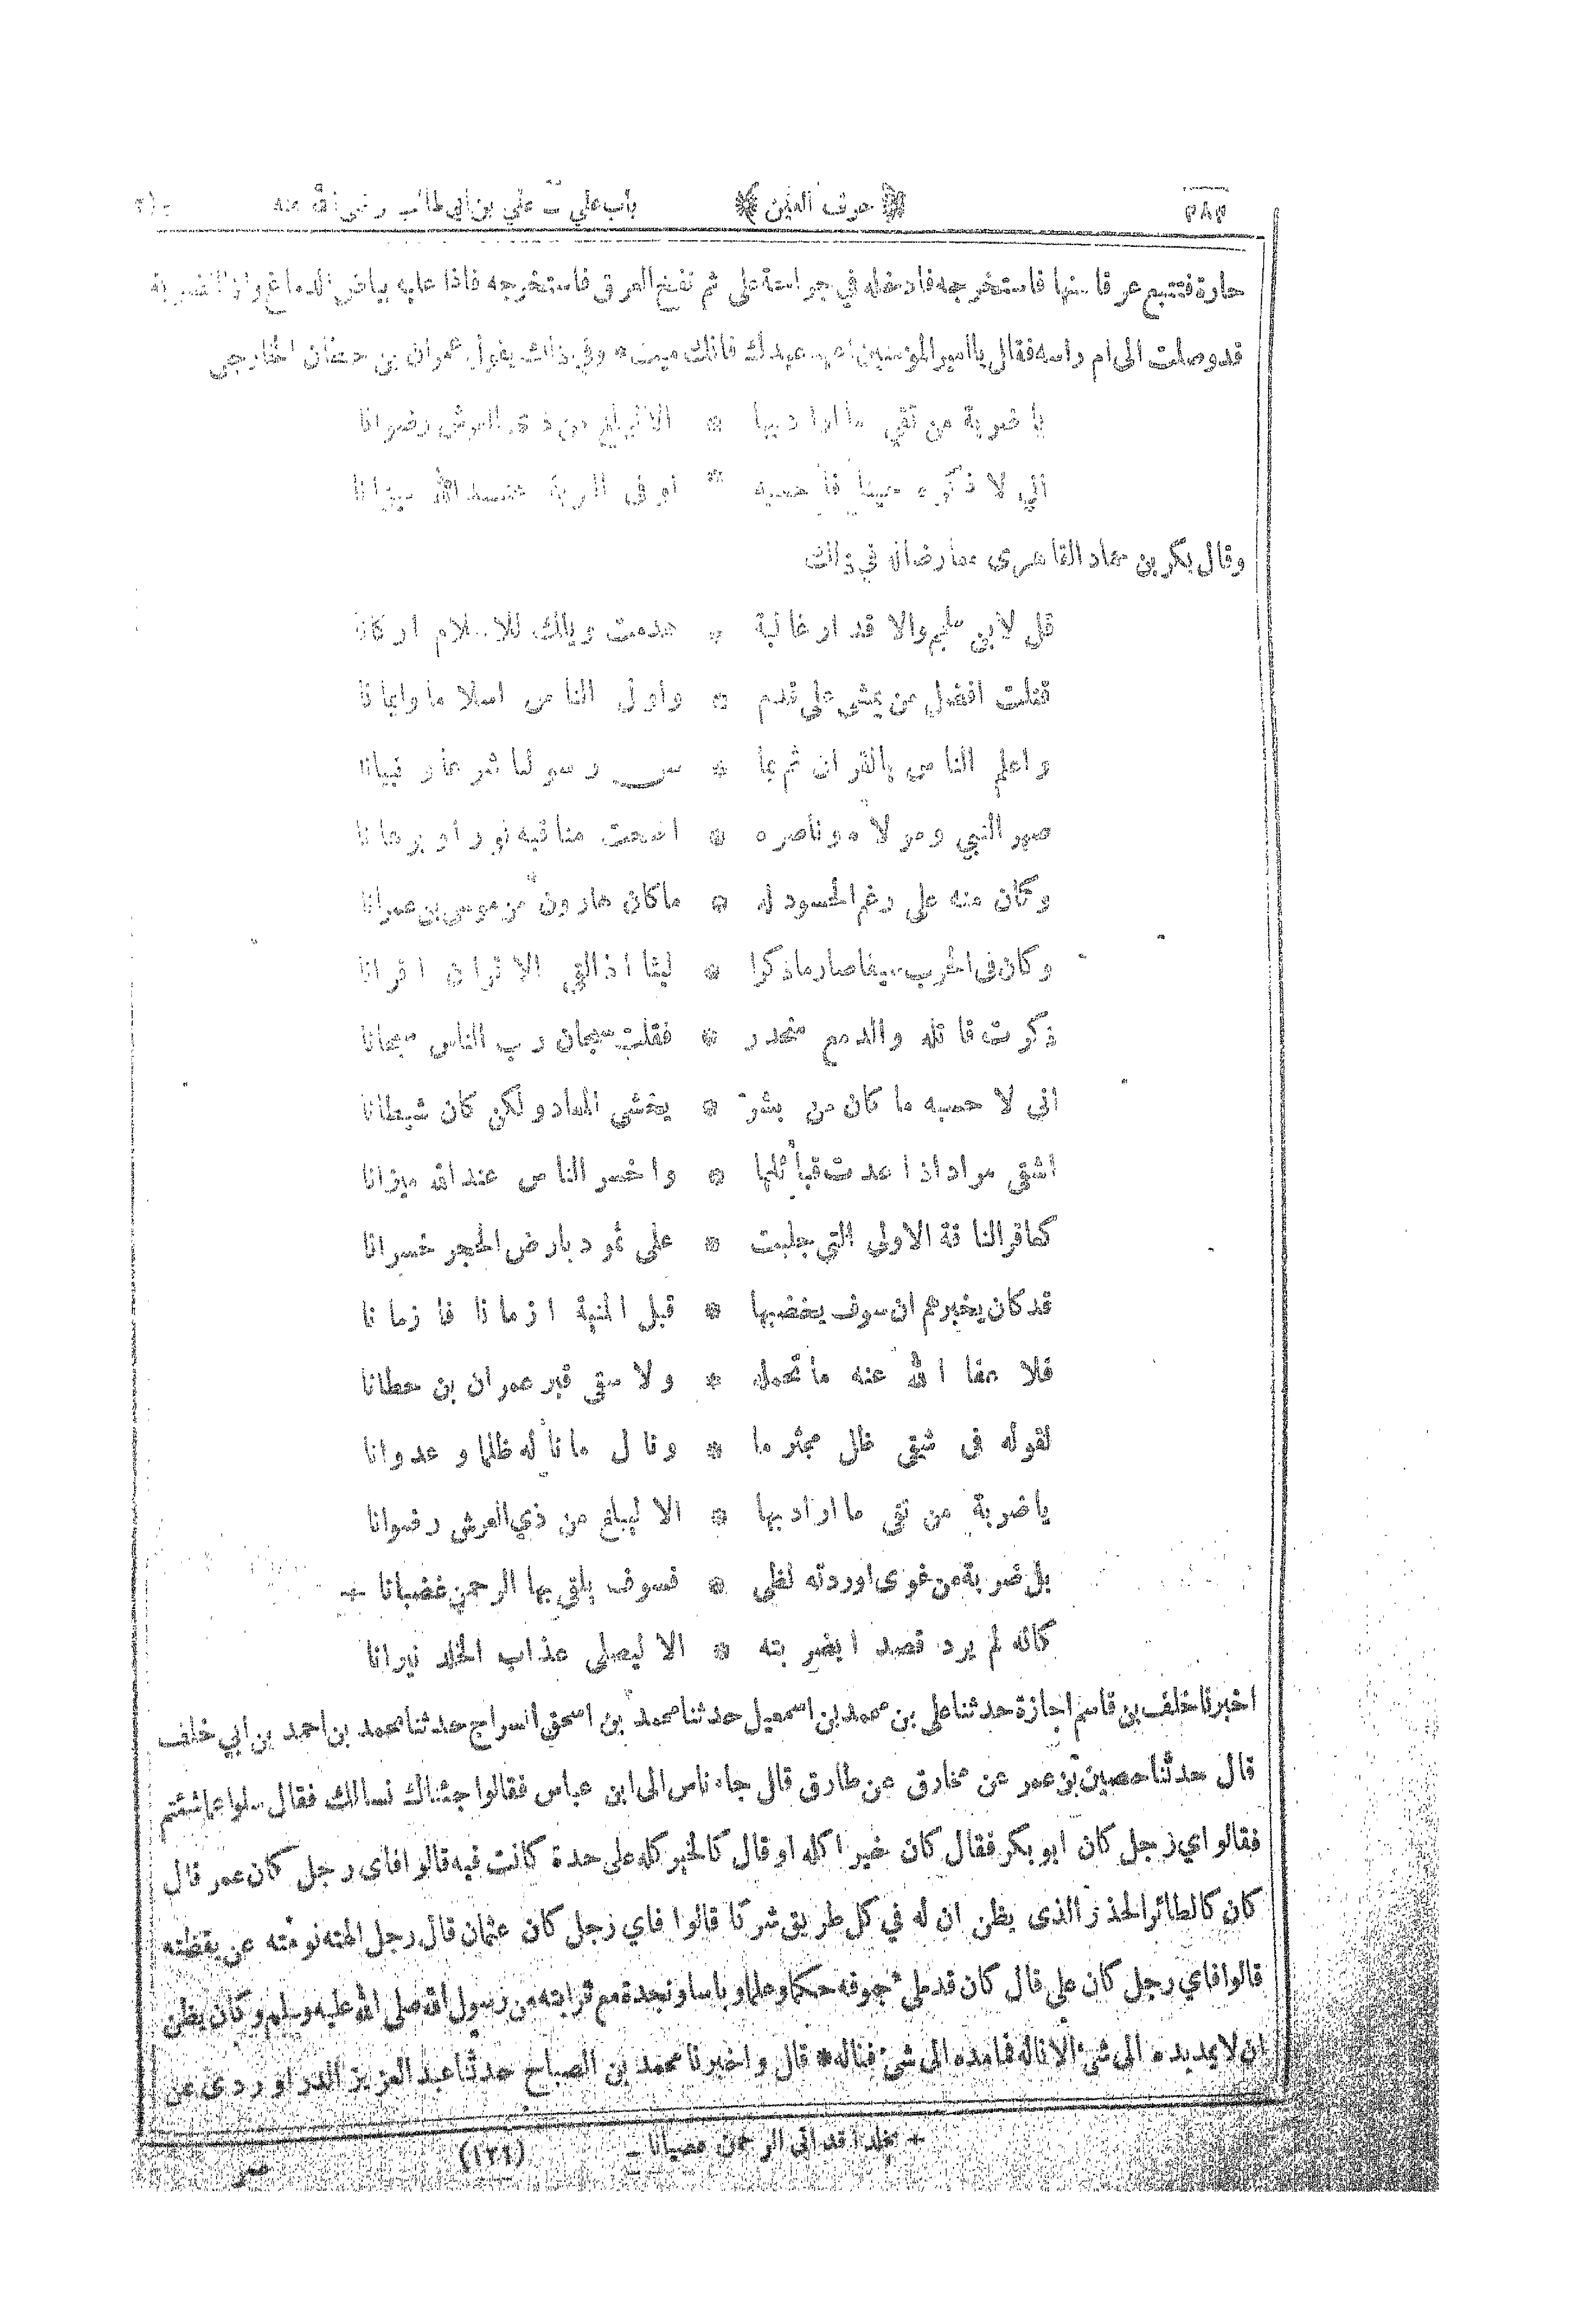 ٤٨٣ ﴿ حرف العين ﴾ باب علي - علي بن ابي طالب رضى الله عنه
حارة فتتبع عرقا منها فاستخرجه فادخله في جراحة على ثم نفخ العرق فاستخرجه فاذا عليه بياض الدماغ واذا الضربة
قد وصلت الى ام راسه فقال يا امير المؤمنين اعهد عهدك فانك ميت * وفي ذلك يقول عمران بن حطان الخارجى
يا ضربة من تقي ما اراد بها * الا ليبلغ من ذى العرش رضوانا
اني لا ذكره حينا فاحسبه * اوفى البرية عند الله ميزانا
وقال بكر بن حماد القاهرى معارضا له في ذلك
قل لابن ملجم والا قدار غالبة * هدمت ويلك للاسلام اركانا
قتلت افضل من يمشى على قدم * واول الناس اسلاما وايمانا
واعلم الناس بالقران ثم بما * سن رسولنا شرعا وتبيانا
صهر النبي ومولاه وناصره * اضحت مناقبه نورا وبرهانا
وكان منه على رغم الحسود له * ماكان هارون من موسى بن عمرانا
وكان فى الحرب سيفا صارما ذكرا * ليثا اذا لقي الاقران اقرانا
ذكرت قاتله والدمع منحدر * فقلت سبحان رب الناس سبحانا
انى لا حسبه ما كان من بشر * يخشى المعاد ولكن كان شيطانا
اشقى مراد اذا عدت قبائلها * واخسر الناس عند الله ميزانا
كعاقر الناقة الاولى التي جلبت * على ثمود بارض الحجر خسرانا
قدكان يخبرهم ان سوف يخضبها * قبل المنية ازمانا فازمانا
فلا عفا الله عنه ما تحمله * ولا سقى قبر عمران بن حطانا
لقوله فى شقي ظل مجترما * ونال ما ناله ظلما وعدوانا
يا ضربة من تقى ما اراد بها * الا ليبلغ من ذي العرش رضوانا
بل ضربة من غوى اوردته لظى * فسوف يلقى بها الرحمن غضبانا +
كانه لم يرد قصدا بضربته * الا ليصلى عذاب الخلد نيرانا
اخبرنا خلف بن قاسم اجازة حدثنا على بن محمد بن اسمعيل حدثنا محمد بن اسحق السراج حدثنا محمد بن احمد بن ابي خلف
قال حدثنا حصين بن عمر عن مخارق عن طارق قال جاء ناس الى ابن عباس فقالوا جئناك نسالك فقال سلوا عما شئتم
فقالوا اي رجل كان ابو بكر فقال كان خيرا كله او قال كالخير كله على حدة كانت فيه قالوا فاى رجل كان عمر قال
كان كالطائر الحذر الذى يظن ان له في كل طريق شركا قالوا فاي رجل كان عثمان قال رجل الهته نومته عن يقظته
قالوا فاي رجل كان على قال كان قد ملئ جوفه حكما وعلما وباسا ونجدة مع قرابته من رسول الله صلى الله عليه وسلم وكان يظن
ان لا يمد يده الى شئ الا ناله فما مده الى شئ فناله * قال واخبرنا محمد بن الصباح حدثنا عبد العزيز الدراوردى عن
+ مخلدا قد اتى الرحمن عصيانا - (١٢١) عمر